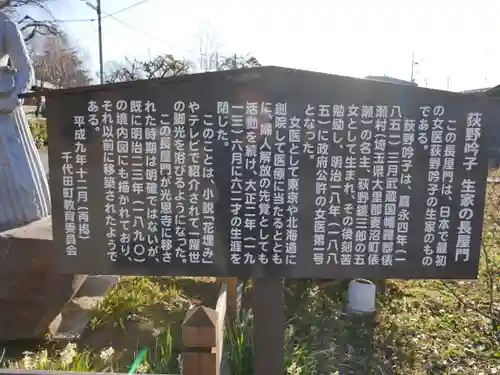 荻野吟子 生家の長屋門
この長屋門は、日本で最初
の女医荻野吟子の生家のもの
である。
荻野吟子は、嘉永四年(一
八五一)三月武蔵国幡羅郡俵
瀬村(埼玉県大里郡妻沼町俵
瀬)の名主、荻野綾三郎の五
女として生まれ、その後刻苦
勉励し、明治一八年(一八八
五)に政府公許の女医第一号
となった。
女医として東京や北海道に
創院して医療に当たるととも
に、婦人解放の先覚としても
活動を続け、大正二年(一九
一三)六月に六二才の生涯を
閉じた。
このことは、小説「花埋み」
やテレビで紹介されて一躍世
の脚光を浴びるようになった。
この長屋門が光恩寺に移さ
れた時期は明確ではないが、
既に明治二三年(一八九〇)
の境内図にも描かれており、
それ以前に移築されたようで
ある。
平成九年十二月(再掲)
千代田町教育委員会